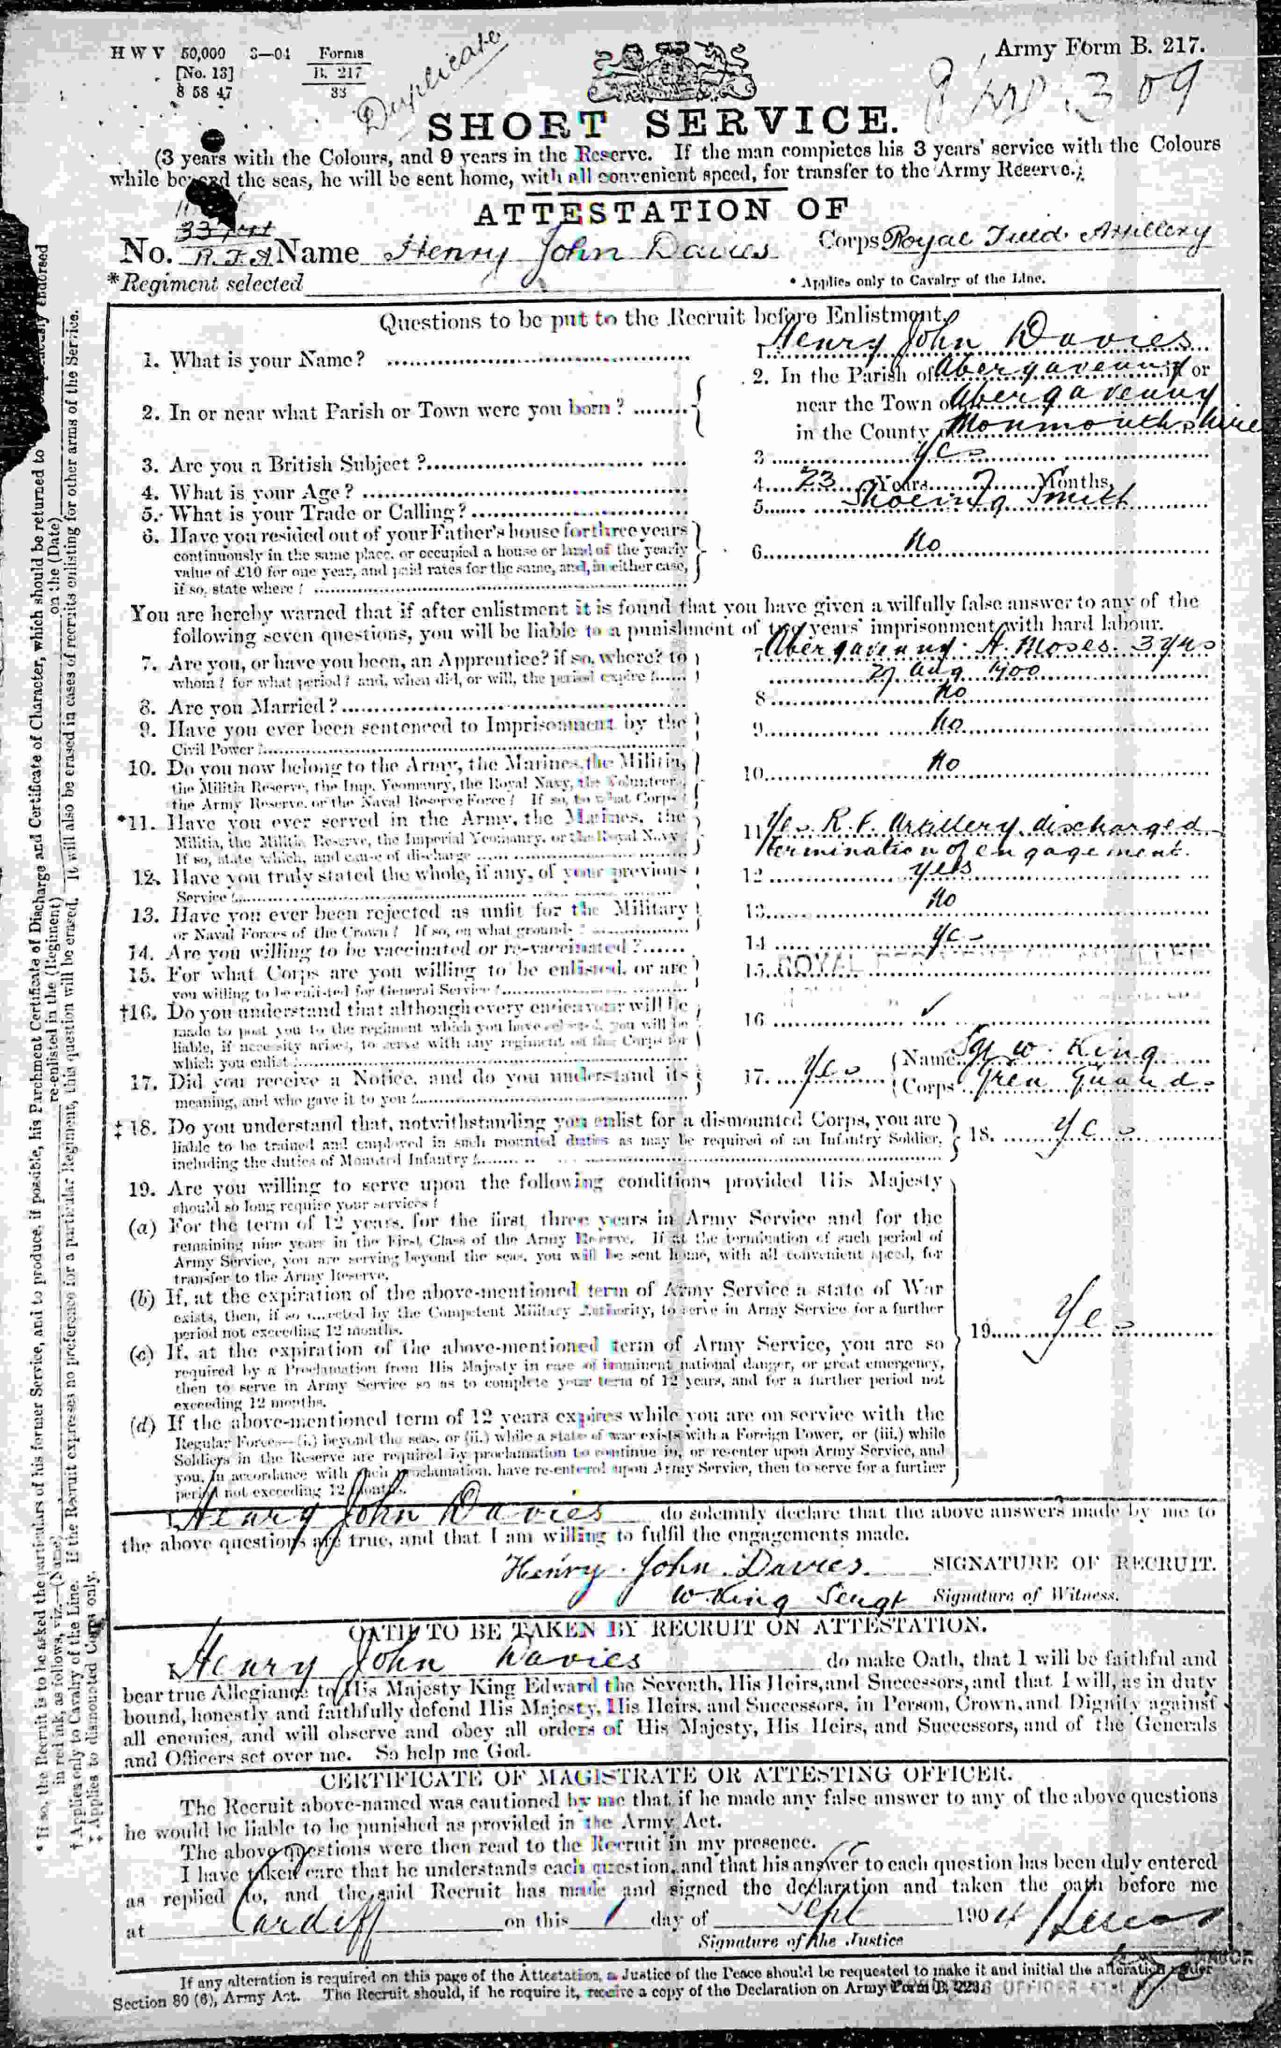 H W V 50,000 3—04 Forms
[No. 13] B. 217
8 58 47 33
Duplicate
Army Form B. 217.
SHORT SERVICE.
(3 years with the Colours, and 9 years in the Reserve. If the man completes his 3 years' service with the Colours
while beyond the seas, he will be sent home, with all convenient speed, for transfer to the Army Reserve.)
ATTESTATION OF
No. R.F.A Name Henry John Davies Corps Royal Field Artillery
*Regiment selected
* Applies only to Cavalry of the Line.
Questions to be put to the Recruit before Enlistment.
1. What is your Name? 1. Henry John Davies
2. In or near what Parish or Town were you born? 2. In the Parish of Abergavenny in or
near the Town of Abergavenny
in the County of Monmouthshire
3. Are you a British Subject? 3 Yes
4. What is your Age? 4 23 Years 7 Months
5. What is your Trade or Calling? 5 Shoeing Smith
6. Have you resided out of your Father's house for three years
continuously in the same place, or occupied a house or land of the yearly
value of £10 for one year, and paid rates for the same, and, in either case,
if so, state where? 6 No
You are hereby warned that if after enlistment it is found that you have given a wilfully false answer to any of the
following seven questions, you will be liable to a punishment of two years' imprisonment with hard labour.
7. Are you, or have you been, an Apprentice? if so, where? to
whom? for what period? and, when did, or will, the period expire? 7 Abergavenny A. Moses 3 yrs
27 Aug 1900
8. Are you Married? 8 No
9. Have you ever been sentenced to Imprisonment by the
Civil Power? 9 No
10. Do you now belong to the Army, the Marines, the Militia,
the Militia Reserve, the Imp. Yeomanry, the Royal Navy, the Volunteers,
the Army Reserve, or the Naval Reserve Force? If so, to what Corps? 10 No
*11. Have you ever served in the Army, the Marines, the
Militia, the Militia Reserve, the Imperial Yeomanry, or the Royal Navy?
If so, state which, and cause of discharge 11 Yes R. F. Artillery discharged
termination of engagement.
12. Have you truly stated the whole, if any, of your previous
Service? 12 Yes
13. Have you ever been rejected as unfit for the Military
or Naval Forces of the Crown? If so, on what grounds? 13 No
14. Are you willing to be vaccinated or re-vaccinated? 14 Yes
15. For what Corps are you willing to be enlisted, or are
you willing to be enlisted for General Service? 15 ROYAL
†16. Do you understand that although every endeavour will be
made to post you to the regiment which you have selected, you will be
liable, if necessity arises, to serve with any regiment of the Corps for
which you enlist 16 ✓
17. Did you receive a Notice, and do you understand its
meaning, and who gave it to you? 17. Yes Name Sgt W. King
Corps Gren Guards
‡18. Do you understand that, notwithstanding you enlist for a dismounted Corps, you are
liable to be trained and employed in such mounted duties as may be required of an Infantry Soldier,
including the duties of Mounted Infantry? 18. Yes
19. Are you willing to serve upon the following conditions provided His Majesty
should so long require your services?
(a) For the term of 12 years, for the first three years in Army Service and for the
remaining nine years in the First Class of the Army Reserve. If at the termination of such period of
Army Service, you are serving beyond the seas, you will be sent home, with all convenient speed, for
transfer to the Army Reserve.
(b) If, at the expiration of the above-mentioned term of Army Service a state of War
exists, then, if so directed by the Competent Military Authority, to serve in Army Service for a further
period not exceeding 12 months. 19 Yes
(c) If, at the expiration of the above-mentioned term of Army Service, you are so
required by a Proclamation from His Majesty in case of imminent national danger, or great emergency,
then to serve in Army Service so as to complete your term of 12 years, and for a further period not
exceeding 12 months.
(d) If the above-mentioned term of 12 years expires while you are on service with the
Regular Forces—(i.) beyond the seas, or (ii.) while a state of war exists with a Foreign Power, or (iii.) while
Soldiers in the Reserve are required by proclamation to continue in, or re-enter upon Army Service, and
you, in accordance with such proclamation, have re-entered upon Army Service, then to serve for a further
period not exceeding 12 months.
I, Henry John Davies do solemnly declare that the above answers made by me to
the above questions are true, and that I am willing to fulfil the engagements made.
Henry John Davies SIGNATURE OF RECRUIT.
W. King Sergt Signature of Witness.
OATH TO BE TAKEN BY RECRUIT ON ATTESTATION.
I, Henry John Davies do make Oath, that I will be faithful and
bear true Allegiance to His Majesty King Edward the Seventh, His Heirs, and Successors, and that I will, as in duty
bound, honestly and faithfully defend His Majesty, His Heirs, and Successors, in Person, Crown, and Dignity against
all enemies, and will observe and obey all orders of His Majesty, His Heirs, and Successors, and of the Generals
and Officers set over me. So help me God.
CERTIFICATE OF MAGISTRATE OR ATTESTING OFFICER.
The Recruit above-named was cautioned by me that if he made any false answer to any of the above questions
he would be liable to be punished as provided in the Army Act.
The above questions were then read to the Recruit in my presence.
I have taken care that he understands each question, and that his answer to each question has been duly entered
as replied to, and the said Recruit has made and signed the declaration and taken the oath before me
at Cardiff on this 1 day of Sept 1904
Signature of the Justice
If any alteration is required on this page of the Attestation, a Justice of the Peace should be requested to make it and initial the alteration under
Section 80 (6), Army Act. The Recruit should, if he require it, receive a copy of the Declaration on Army Form B. 223.
* If so, the Recruit is to be asked the particulars of his former Service, and to produce, if possible, his Parchment Certificate of Discharge and Certificate of Character, which should be returned to endorsed
in red ink, as follows, viz.—(Name) re-enlisted in the (Regiment) on the (Date)
† Applies only to Cavalry of the Line. If the Recruit expresses no preference for a particular Regiment, this question will be erased. It will also be erased in cases of recruits enlisting for other arms of the Service.
‡ Applies to dismounted Corps only.